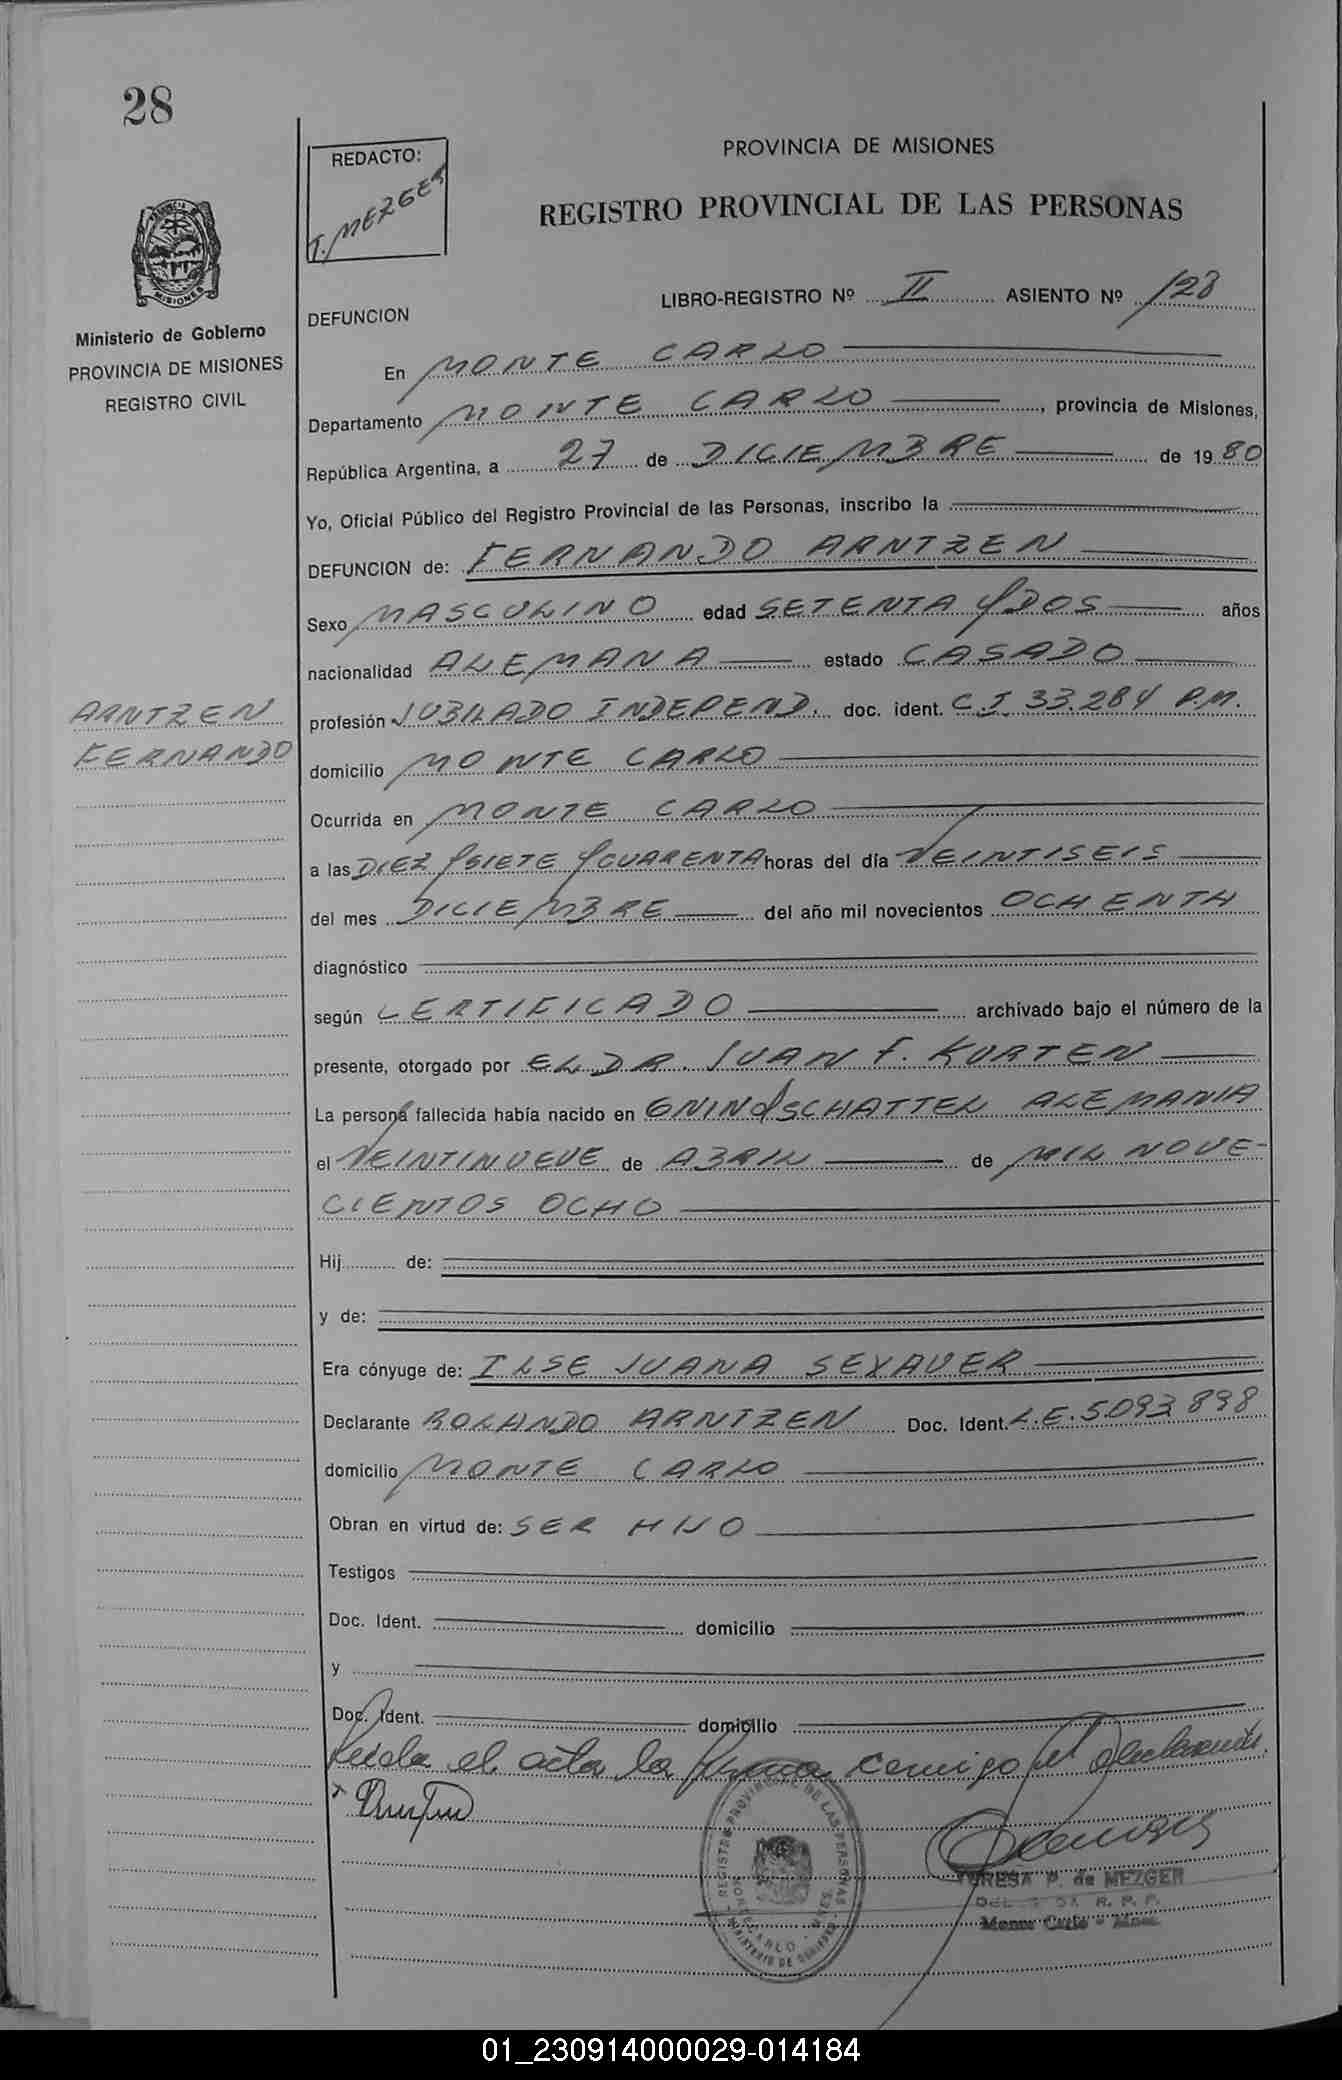 28
REDACTO:
T. MEZGER
PROVINCIA DE MISIONES
REGISTRO PROVINCIAL DE LAS PERSONAS
PROVINCIA DE
MISIONES
Ministerio de Gobierno
PROVINCIA DE MISIONES
REGISTRO CIVIL
LIBRO-REGISTRO Nº II ASIENTO Nº 128
DEFUNCION
En MONTE CARLO
Departamento MONTE CARLO, provincia de Misiones,
República Argentina, a 27 de DICIEMBRE de 1980
Yo, Oficial Público del Registro Provincial de las Personas, inscribo la
DEFUNCION de: FERNANDO ARNTZEN
Sexo MASCULINO edad SETENTA Y DOS años
nacionalidad ALEMANA estado CASADO
ARNTZEN
FERNANDO
profesión JUBILADO INDEPEND. doc. ident. C.I. 33.284 P.M.
domicilio MONTE CARLO
Ocurrida en MONTE CARLO
a las DIEZ Y SIETE Y CUARENTA horas del día VEINTISEIS
del mes DICIEMBRE del año mil novecientos OCHENTA
diagnóstico
según CERTIFICADO archivado bajo el número de la
presente, otorgado por EL DR. JUAN F. KURTEN
La persona fallecida había nacido en ALEMANIA
el VEINTINUEVE de ABRIL de MIL NOVE-
CIENTOS OCHO
Hij de:
y de:
Era cónyuge de: ILSE JUANA SEXAUER
Declarante ROLANDO ARNTZEN Doc. Ident. L.E. 5.093.898
domicilio MONTE CARLO
Obran en virtud de: SER HIJO
Testigos
Doc. Ident. domicilio
y
Doc. Ident. domicilio
Leida el acta la firma conmigo el declarante.
REGISTRO PROVINCIAL DE LAS PERSONAS
MONTECARLO - MNES.
MINISTERIO DE GOBIERNO
TERESA P. de MEZGER
R. P. P.
Monte Carlo - Mnes.
01_230914000029-014184